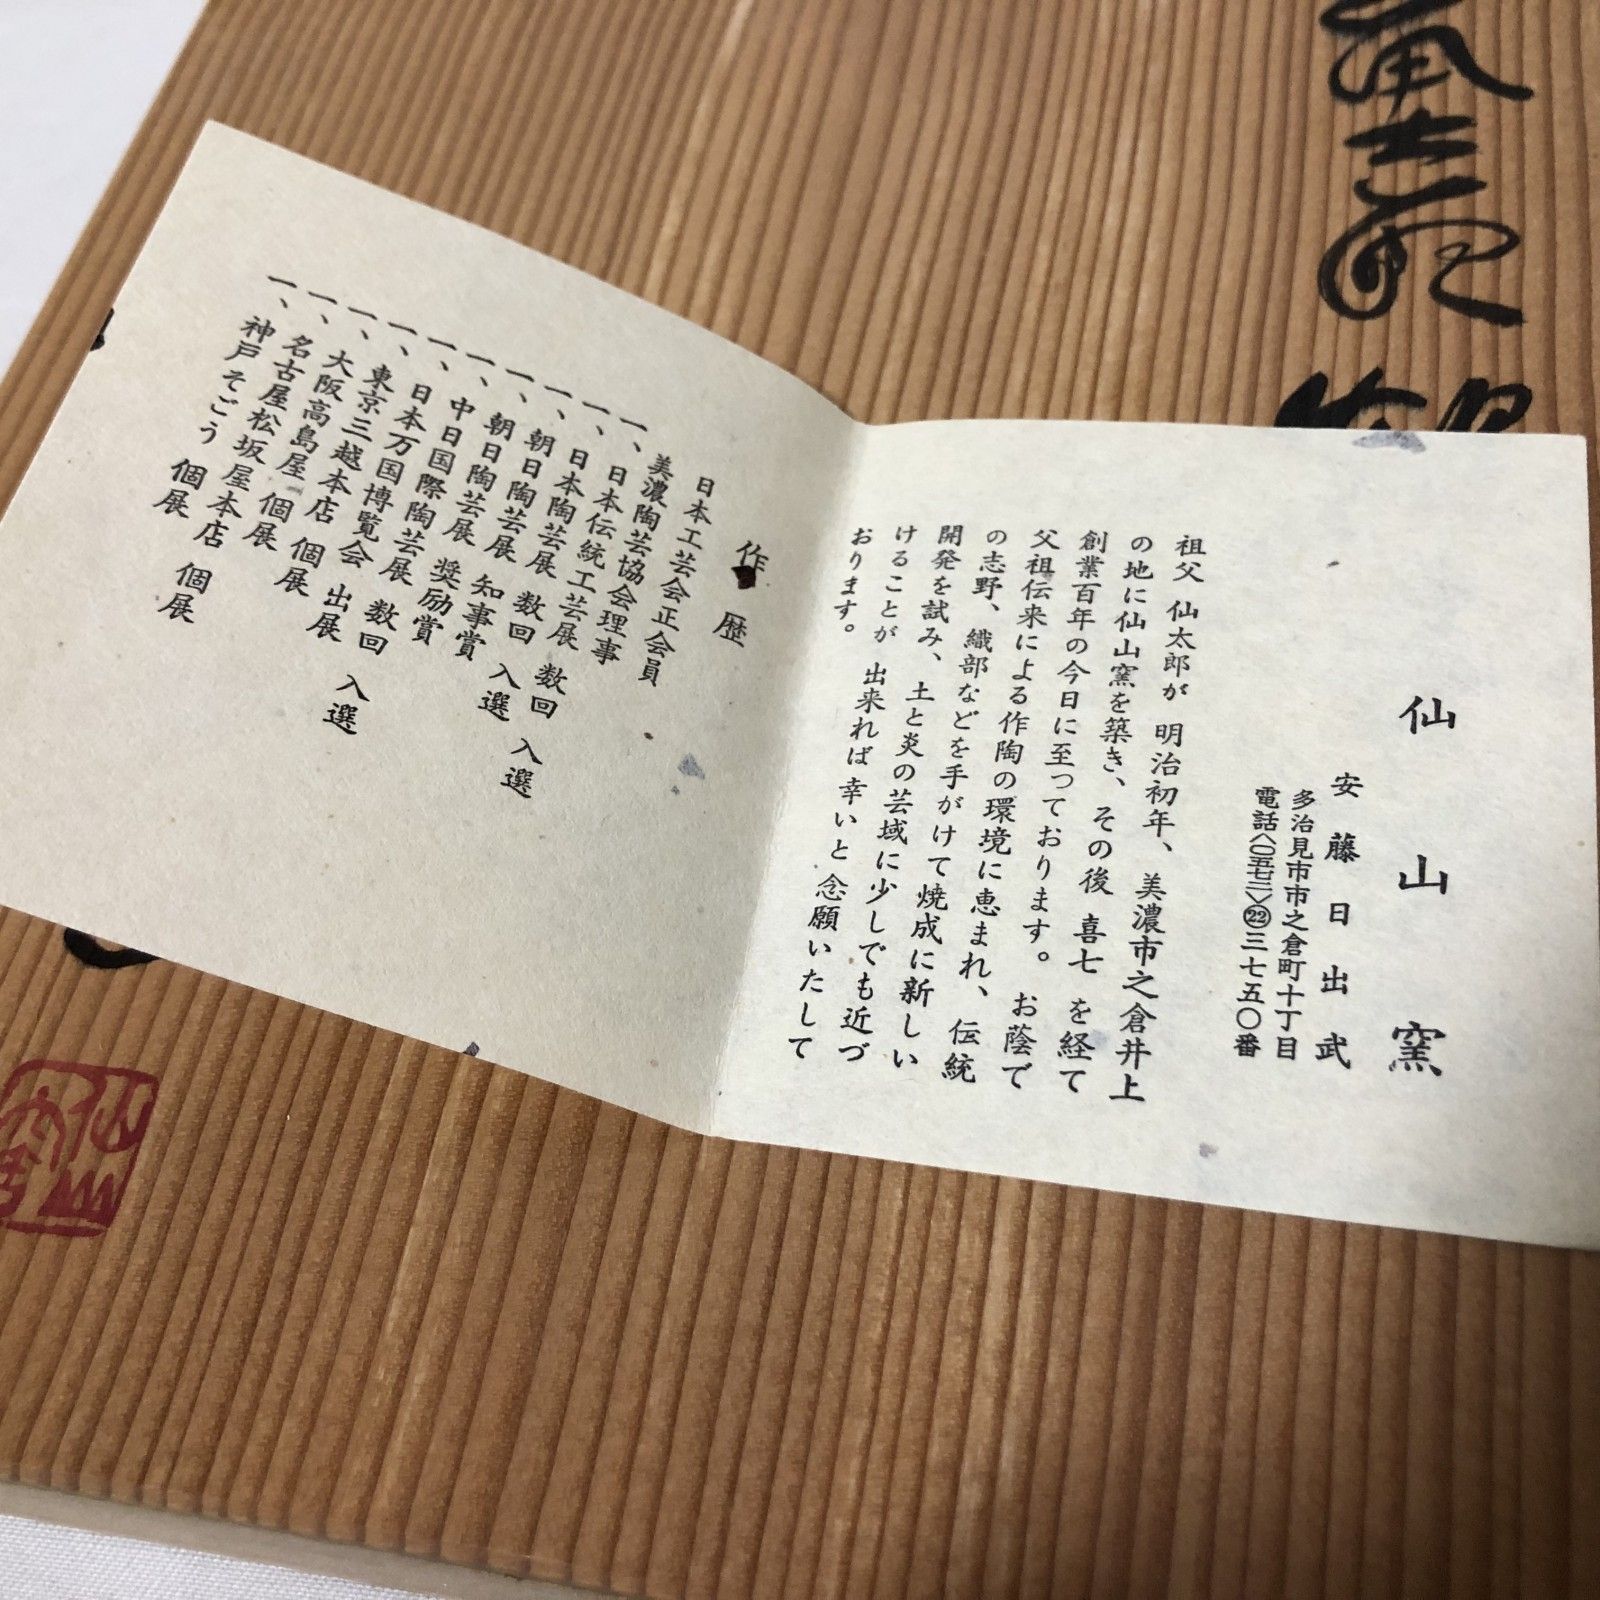 仙山窯
安藤日出武
多治見市市之倉町十丁目
電話〈〇五七二〉㉒三七五〇番
祖父 仙太郎が 明治初年、美濃市之倉井上
の地に仙山窯を築き、その後 喜七 を経て
創業百年の今日に至っております。お蔭で
父祖伝来による作陶の環境に恵まれ、伝統
の志野、織部などを手がけて焼成に新しい
開発を試み、土と炎の芸域に少しでも近づ
けることが 出来れば 幸いと 念願いたして
おります。
作歴
日本工芸会正会員
美濃陶芸協会理事
一、日本伝統工芸展 数回 入選
一、日本陶芸展 数回 入選
一、朝日陶芸展 知事賞
一、朝日陶芸展 奨励賞
一、中日国際陶芸展 数回 入選
一、日本万国博覧会 出展
一、東京三越本店 個展
一、大阪高島屋 個展
一、名古屋松坂屋本店 個展
一、神戸そごう 個展
仙山